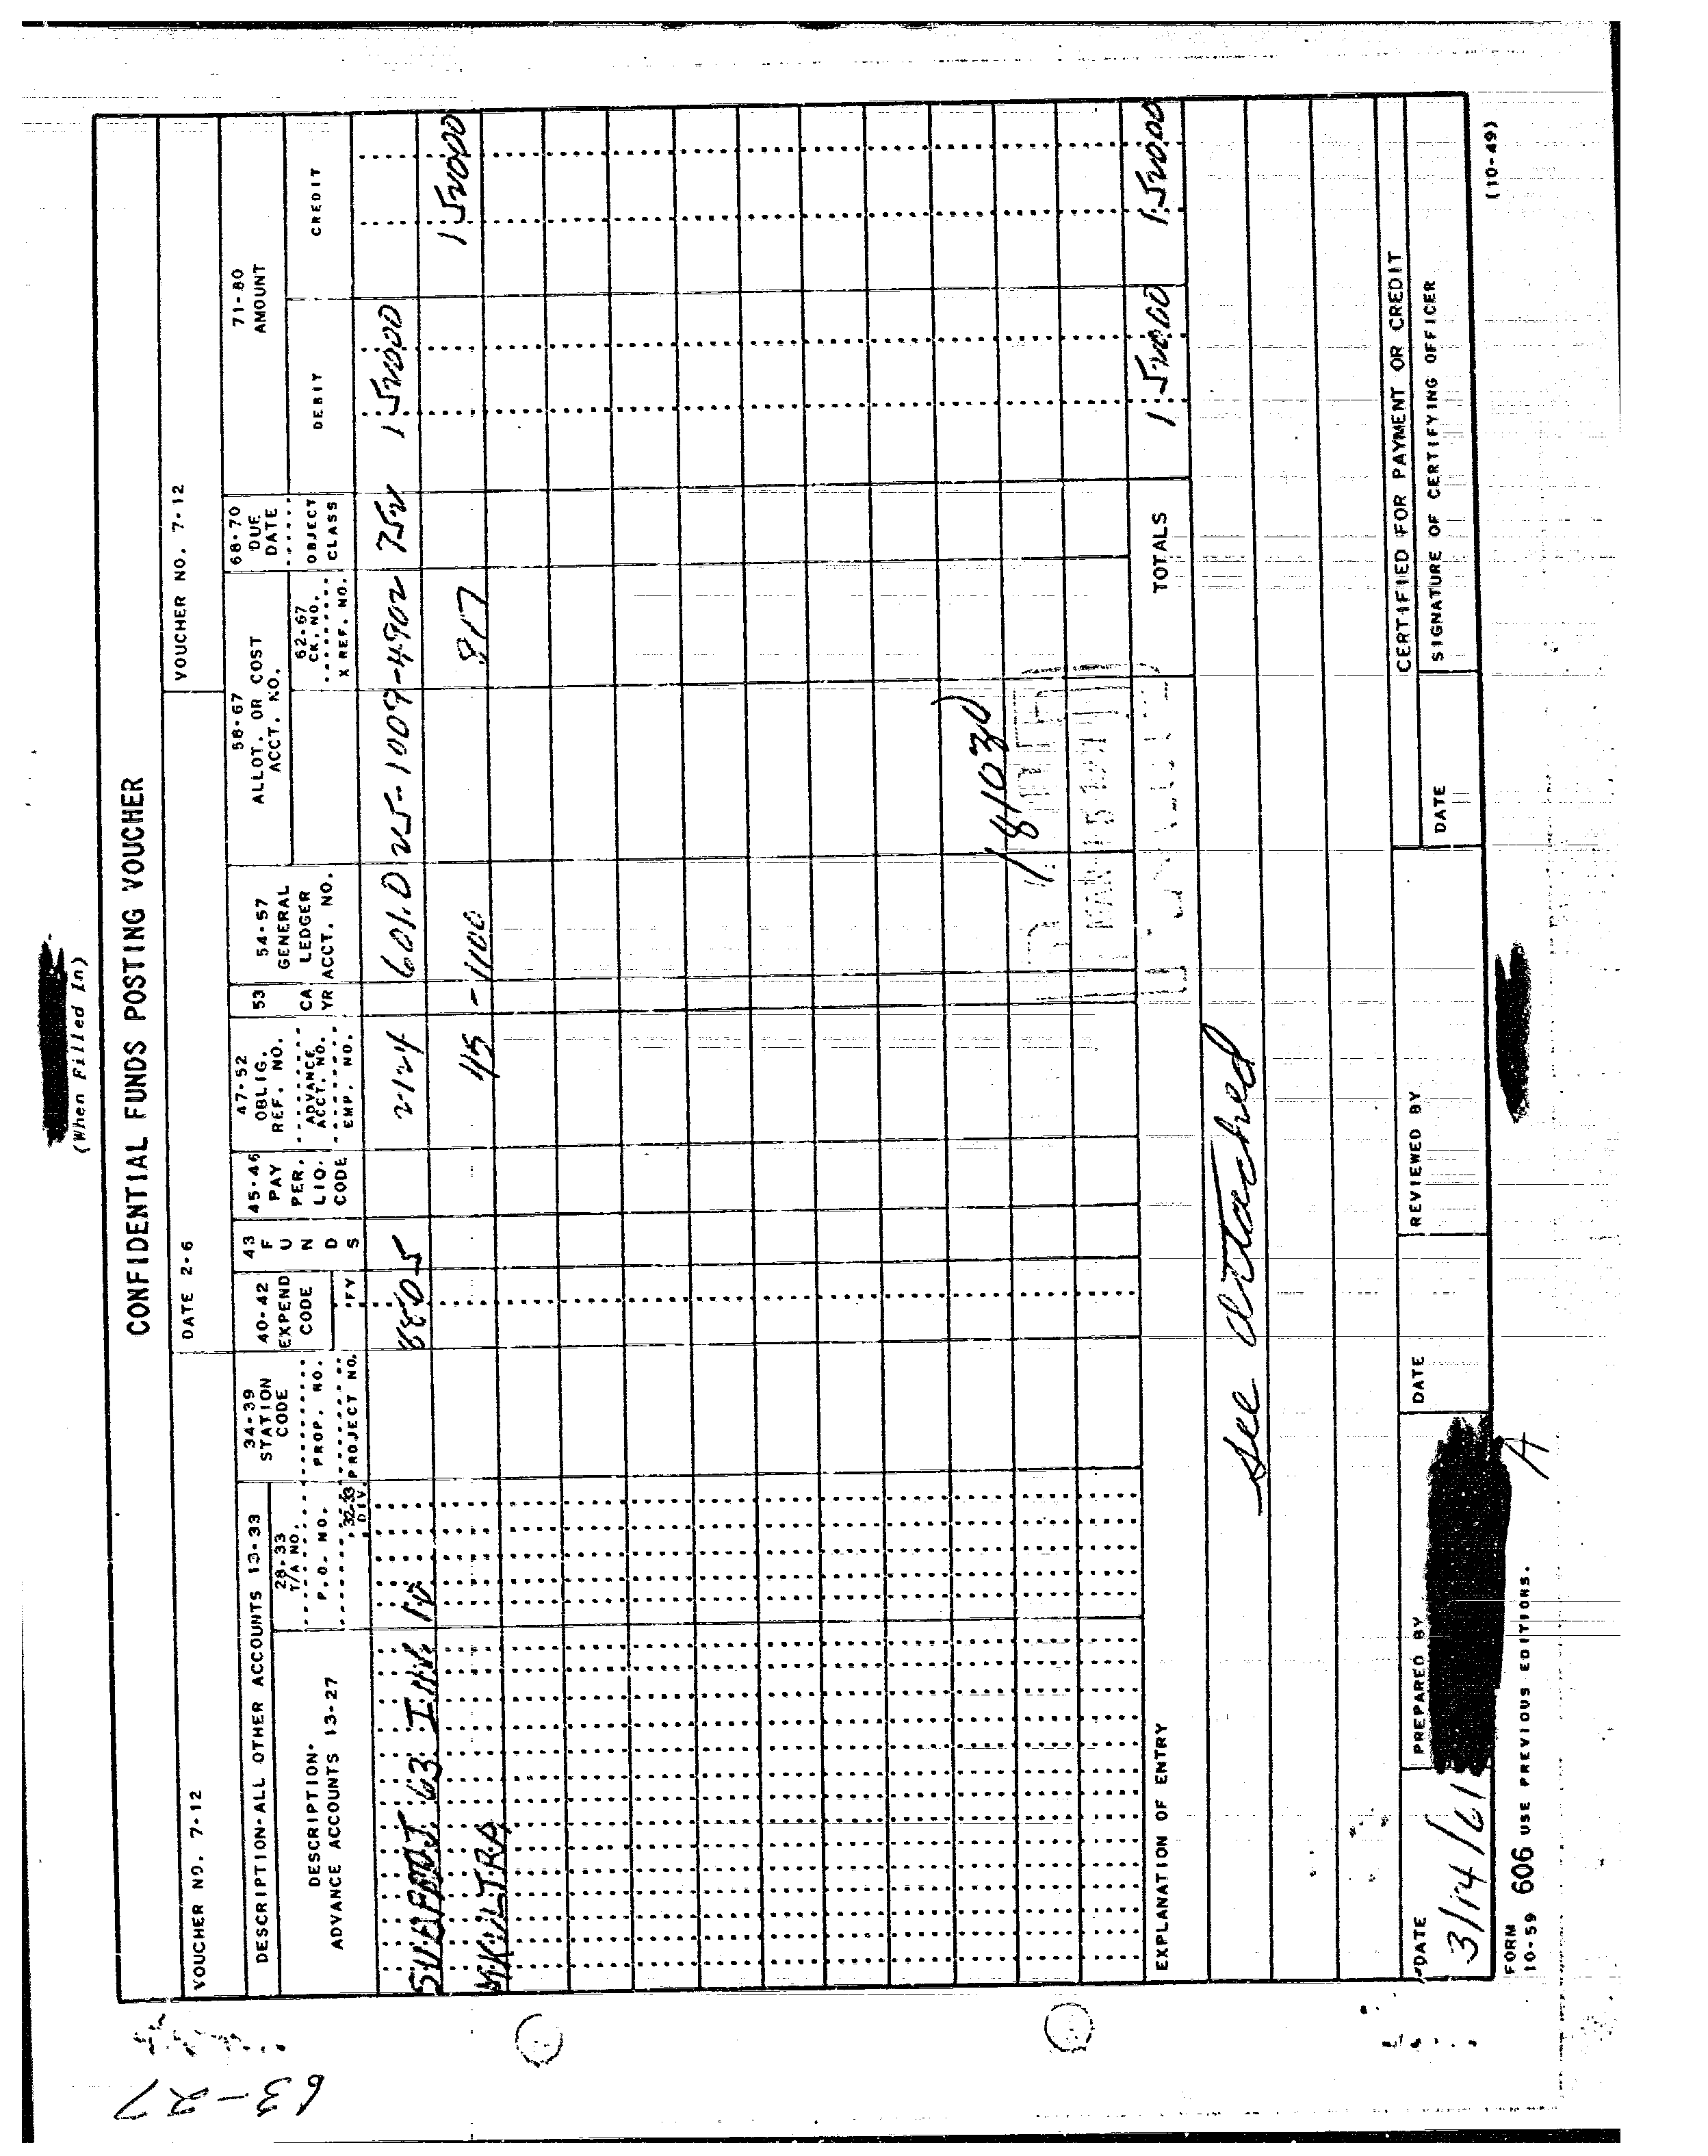 (When Filled In)
CONFIDENTIAL FUNDS POSTING VOUCHER
VOUCHER NO. 7-12
DATE 2-6
VOUCHER NO. 7-12
DESCRIPTION-ALL OTHER ACCOUNTS 13-33
DESCRIPTION-
ADVANCE ACCOUNTS 13-27
28-33
T/A NO.
P.O. NO.
32-33
DIV.
34-39
STATION
CODE
PROP. NO.
PROJECT NO.
40-42
EXPEND
CODE
FY
43
F
U
N
D
S
45-46
PAY
PER.
LIQ.
CODE
47-52
OBLIG.
REF. NO.
ADVANCE
ACCT. NO.
EMP. NO.
53
CA
YR
54-57
GENERAL
LEDGER
ACCT. NO.
58-67
ALLOT. OR COST
ACCT. NO.
62-67
CK. NO.
X REF. NO.
68-70
DUE
DATE
OBJECT
CLASS
71-80
AMOUNT
DEBIT
CREDIT
63 INV. 12 2124 601.0 25-1009-4902 752 152000
MKULTRA 45 - 1100 817 152000
TOTALS 1520.00 1520.00
EXPLANATION OF ENTRY
See attached
CERTIFIED FOR PAYMENT OR CREDIT
DATE
3/14/61
PREPARED BY
DATE
REVIEWED BY
DATE
SIGNATURE OF CERTIFYING OFFICER
FORM
10-59 606 USE PREVIOUS EDITIONS.
(10-49)
63-27